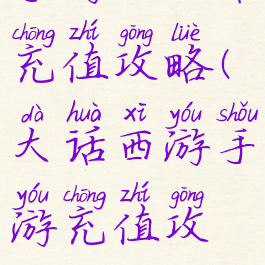 chōng zhí gōng lüè
充值攻略(
dà huà xī yóu shǒu
大话西游手
yóu chōng zhí gōng
游充值攻